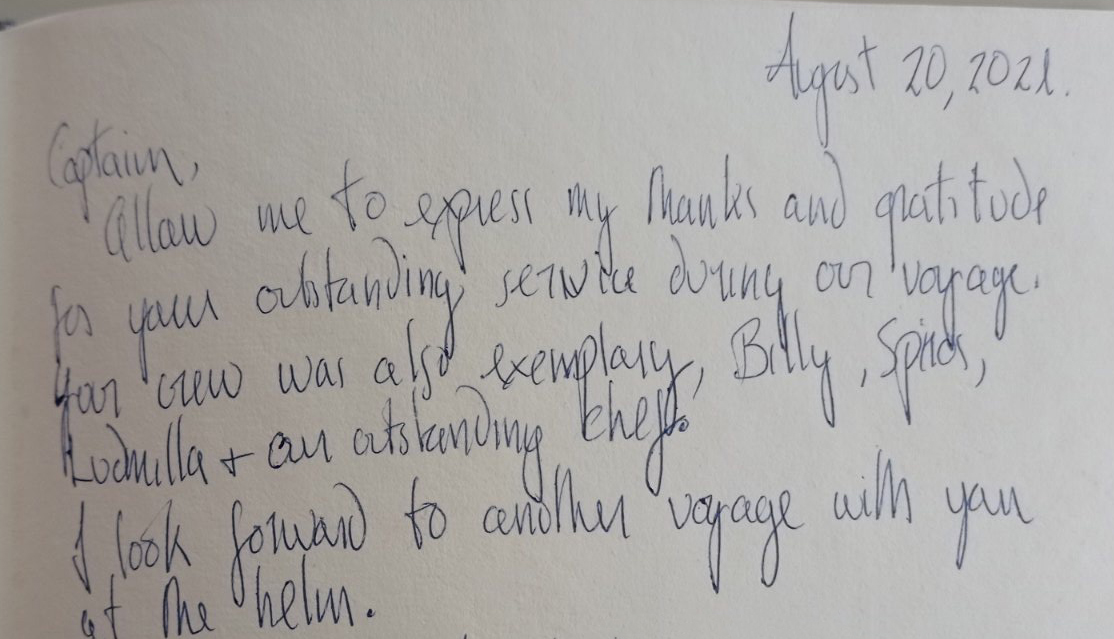 August 20, 2021.
Captain,
Allow me to express my thanks and gratitude
for your outstanding service during our voyage.
Your crew was also exemplary, Billy, Spiros,
Ludmilla + our outstanding chef.
I look forward to another voyage with you
at the helm.